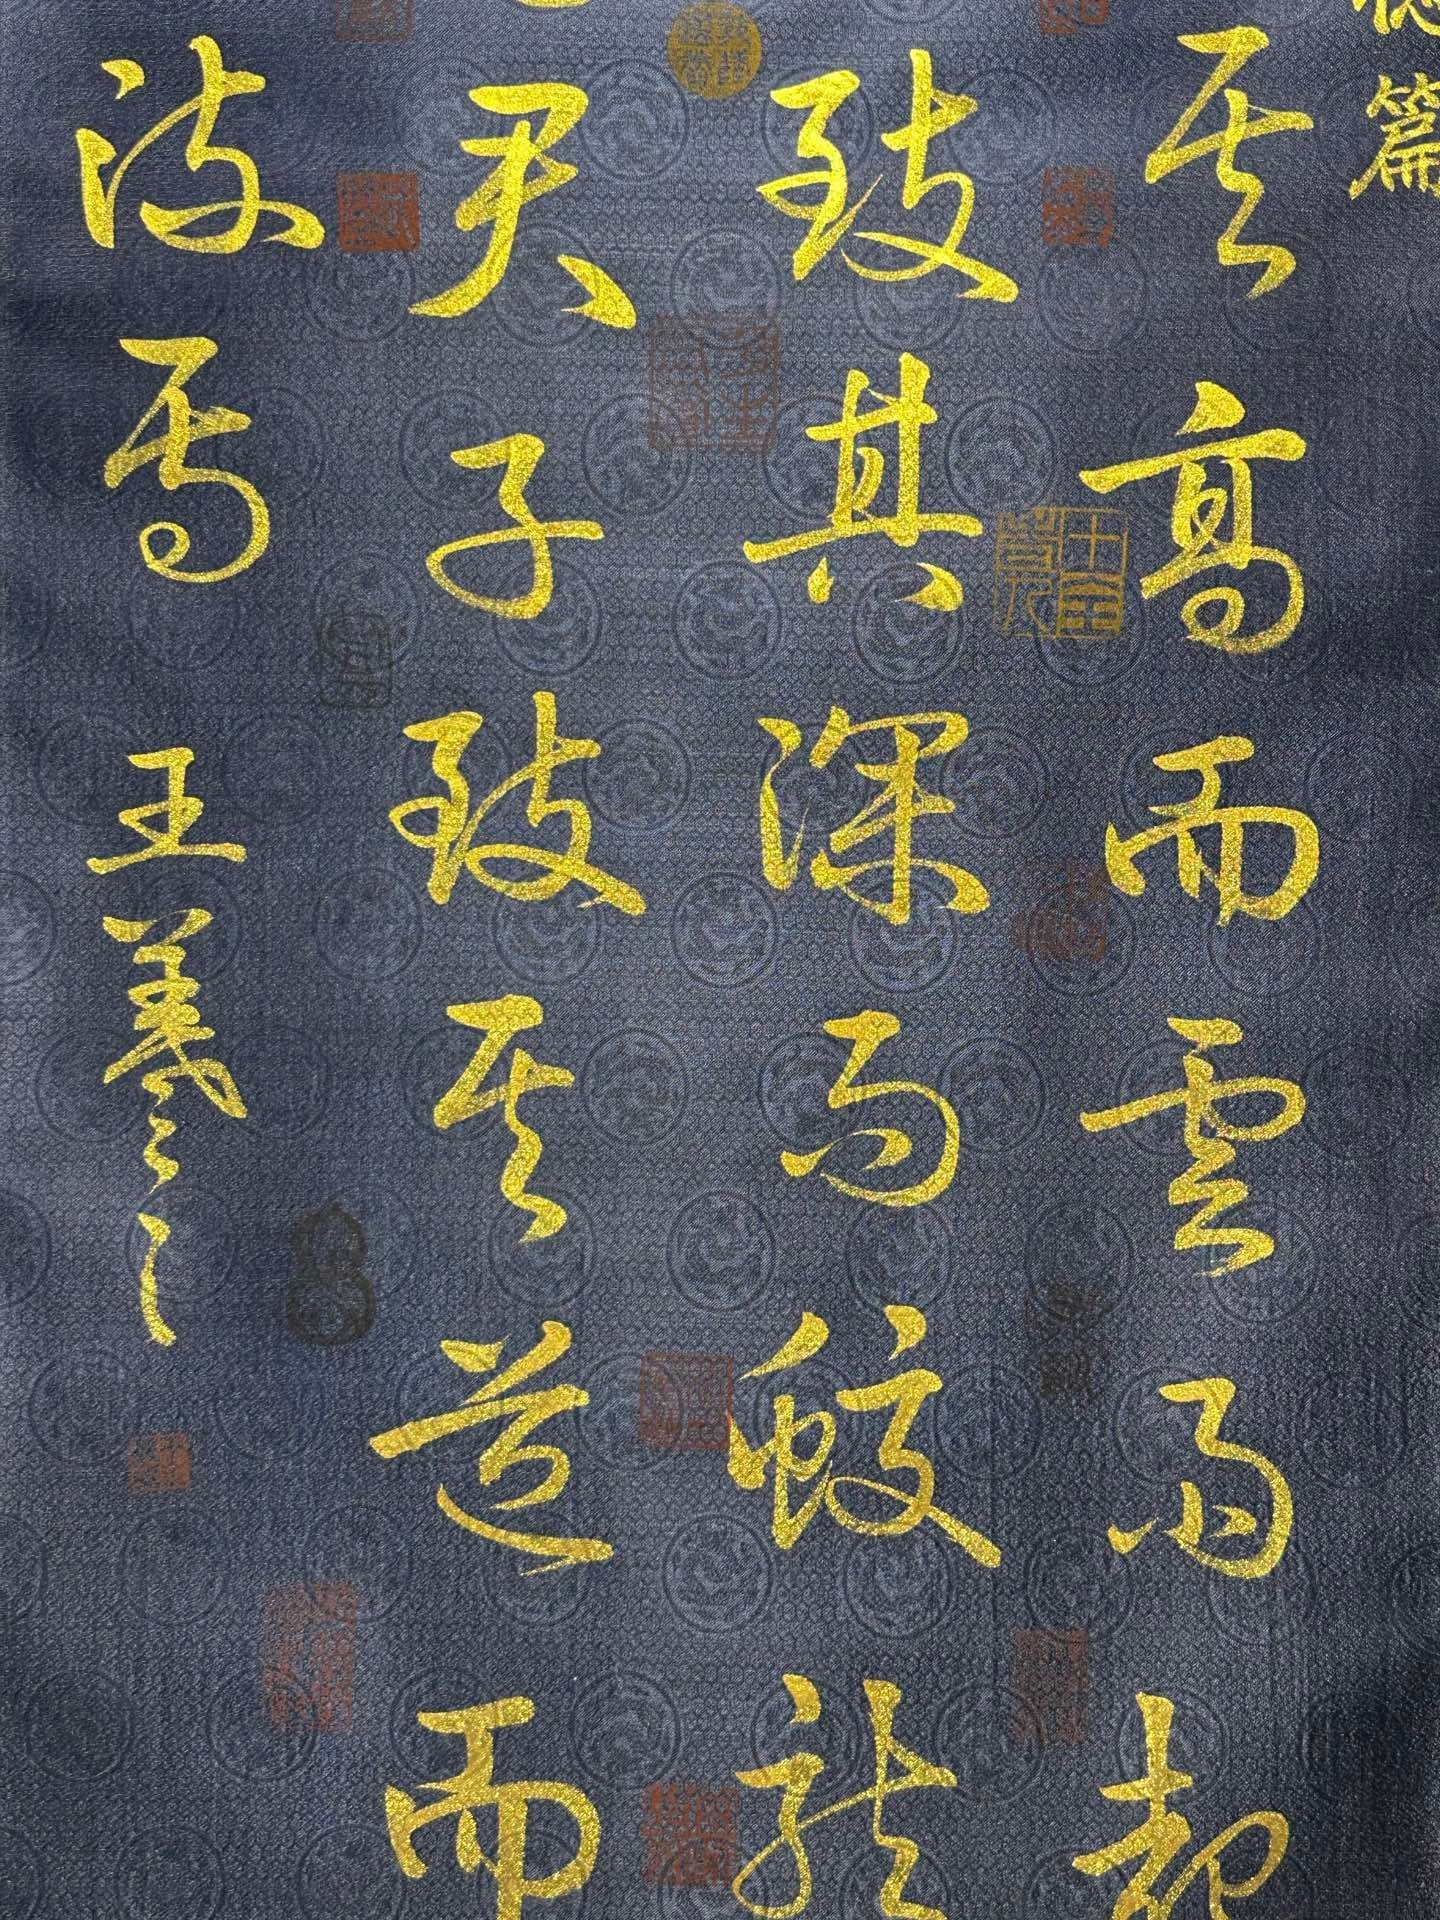 德篇
其高而雲雨起
致其深而蛟龍
君子致其道而
歸焉 王羲之